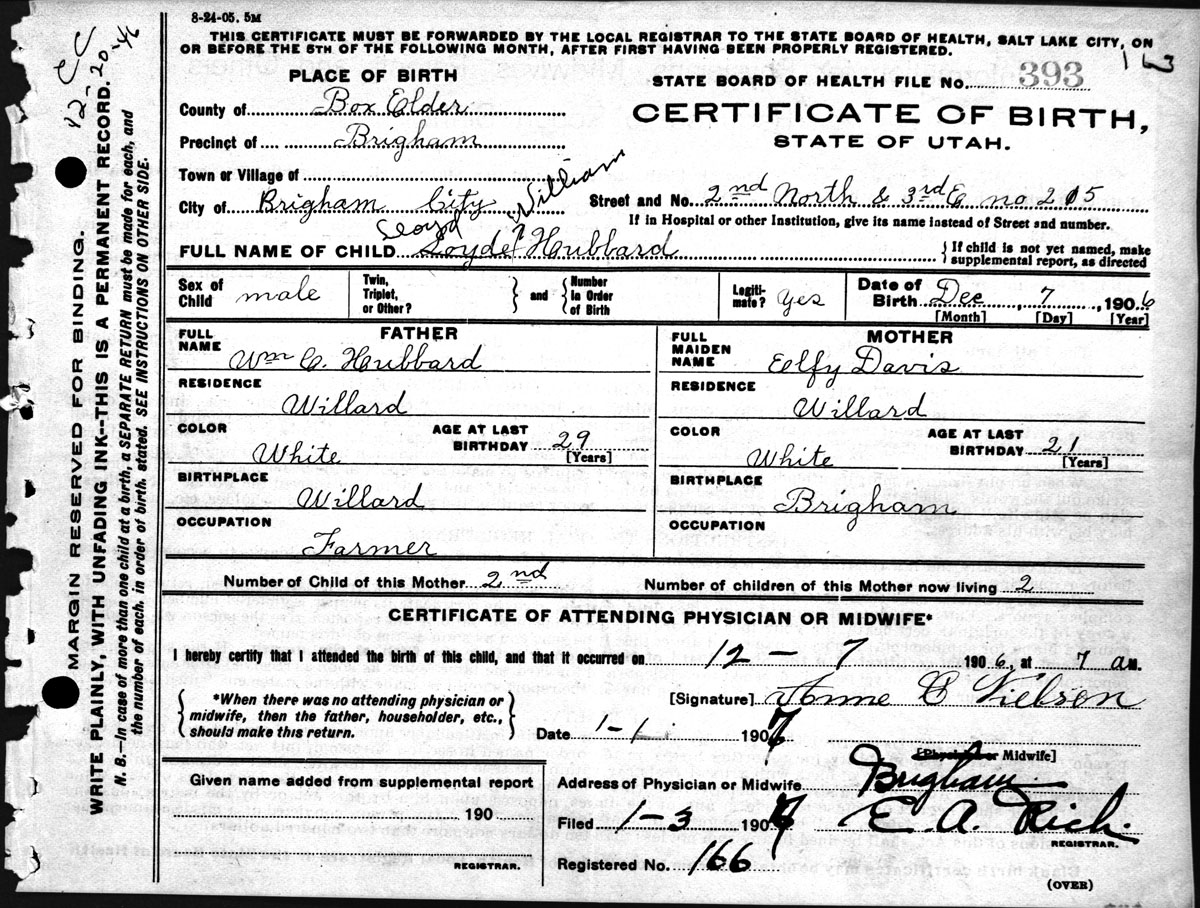 8-24-05. 5M
THIS CERTIFICATE MUST BE FORWARDED BY THE LOCAL REGISTRAR TO THE STATE BOARD OF HEALTH, SALT LAKE CITY, ON
OR BEFORE THE 5TH OF THE FOLLOWING MONTH, AFTER FIRST HAVING BEEN PROPERLY REGISTERED.
163
PLACE OF BIRTH
STATE BOARD OF HEALTH FILE No. 393
County of Box Elder
CERTIFICATE OF BIRTH,
Precinct of Brigham
STATE OF UTAH.
Town or Village of
City of Brigham City
Street and No. 2nd North & 3rd E no 215
If in Hospital or other Institution, give its name instead of Street and number.
William
FULL NAME OF CHILD Loyde Hubbard
{ If child is not yet named, make
supplemental report, as directed
Sex of Child male
Twin, Triplet, or Other? } and { Number in Order of Birth
Legiti-mate? Yes
Date of Birth Dec, 7, 1906
[Month] [Day] [Year]
FATHER
FULL NAME Wm C. Hubbard
RESIDENCE
Willard
COLOR White
AGE AT LAST BIRTHDAY 29
[Years]
BIRTHPLACE
Willard
OCCUPATION
Farmer
MOTHER
FULL MAIDEN NAME Elfy Davis
RESIDENCE
Willard
COLOR White
AGE AT LAST BIRTHDAY 21
[Years]
BIRTHPLACE
Brigham
OCCUPATION
Number of Child of this Mother 2nd
Number of children of this Mother now living 2
CERTIFICATE OF ATTENDING PHYSICIAN OR MIDWIFE*
I hereby certify that I attended the birth of this child, and that it occurred on 12 - 7 1906, at 7 a M.
{ *When there was no attending physician or
midwife, then the father, householder, etc.,
should make this return. }
[Signature] C Nielson
Date 1-1 1907
[Physician or Midwife]
Given name added from supplemental report
190
REGISTRAR.
Address of Physician or Midwife Brigham
Filed 1-3 1907 E. A. Rich
REGISTRAR.
Registered No. 166
(OVER)
MARGIN RESERVED FOR BINDING.
WRITE PLAINLY, WITH UNFADING INK--THIS IS A PERMANENT RECORD.
N. B.—In case of more than one child at a birth, a SEPARATE RETURN must be made for each, and
the number of each, in order of birth, stated. SEE INSTRUCTIONS ON OTHER SIDE.
12-20-46